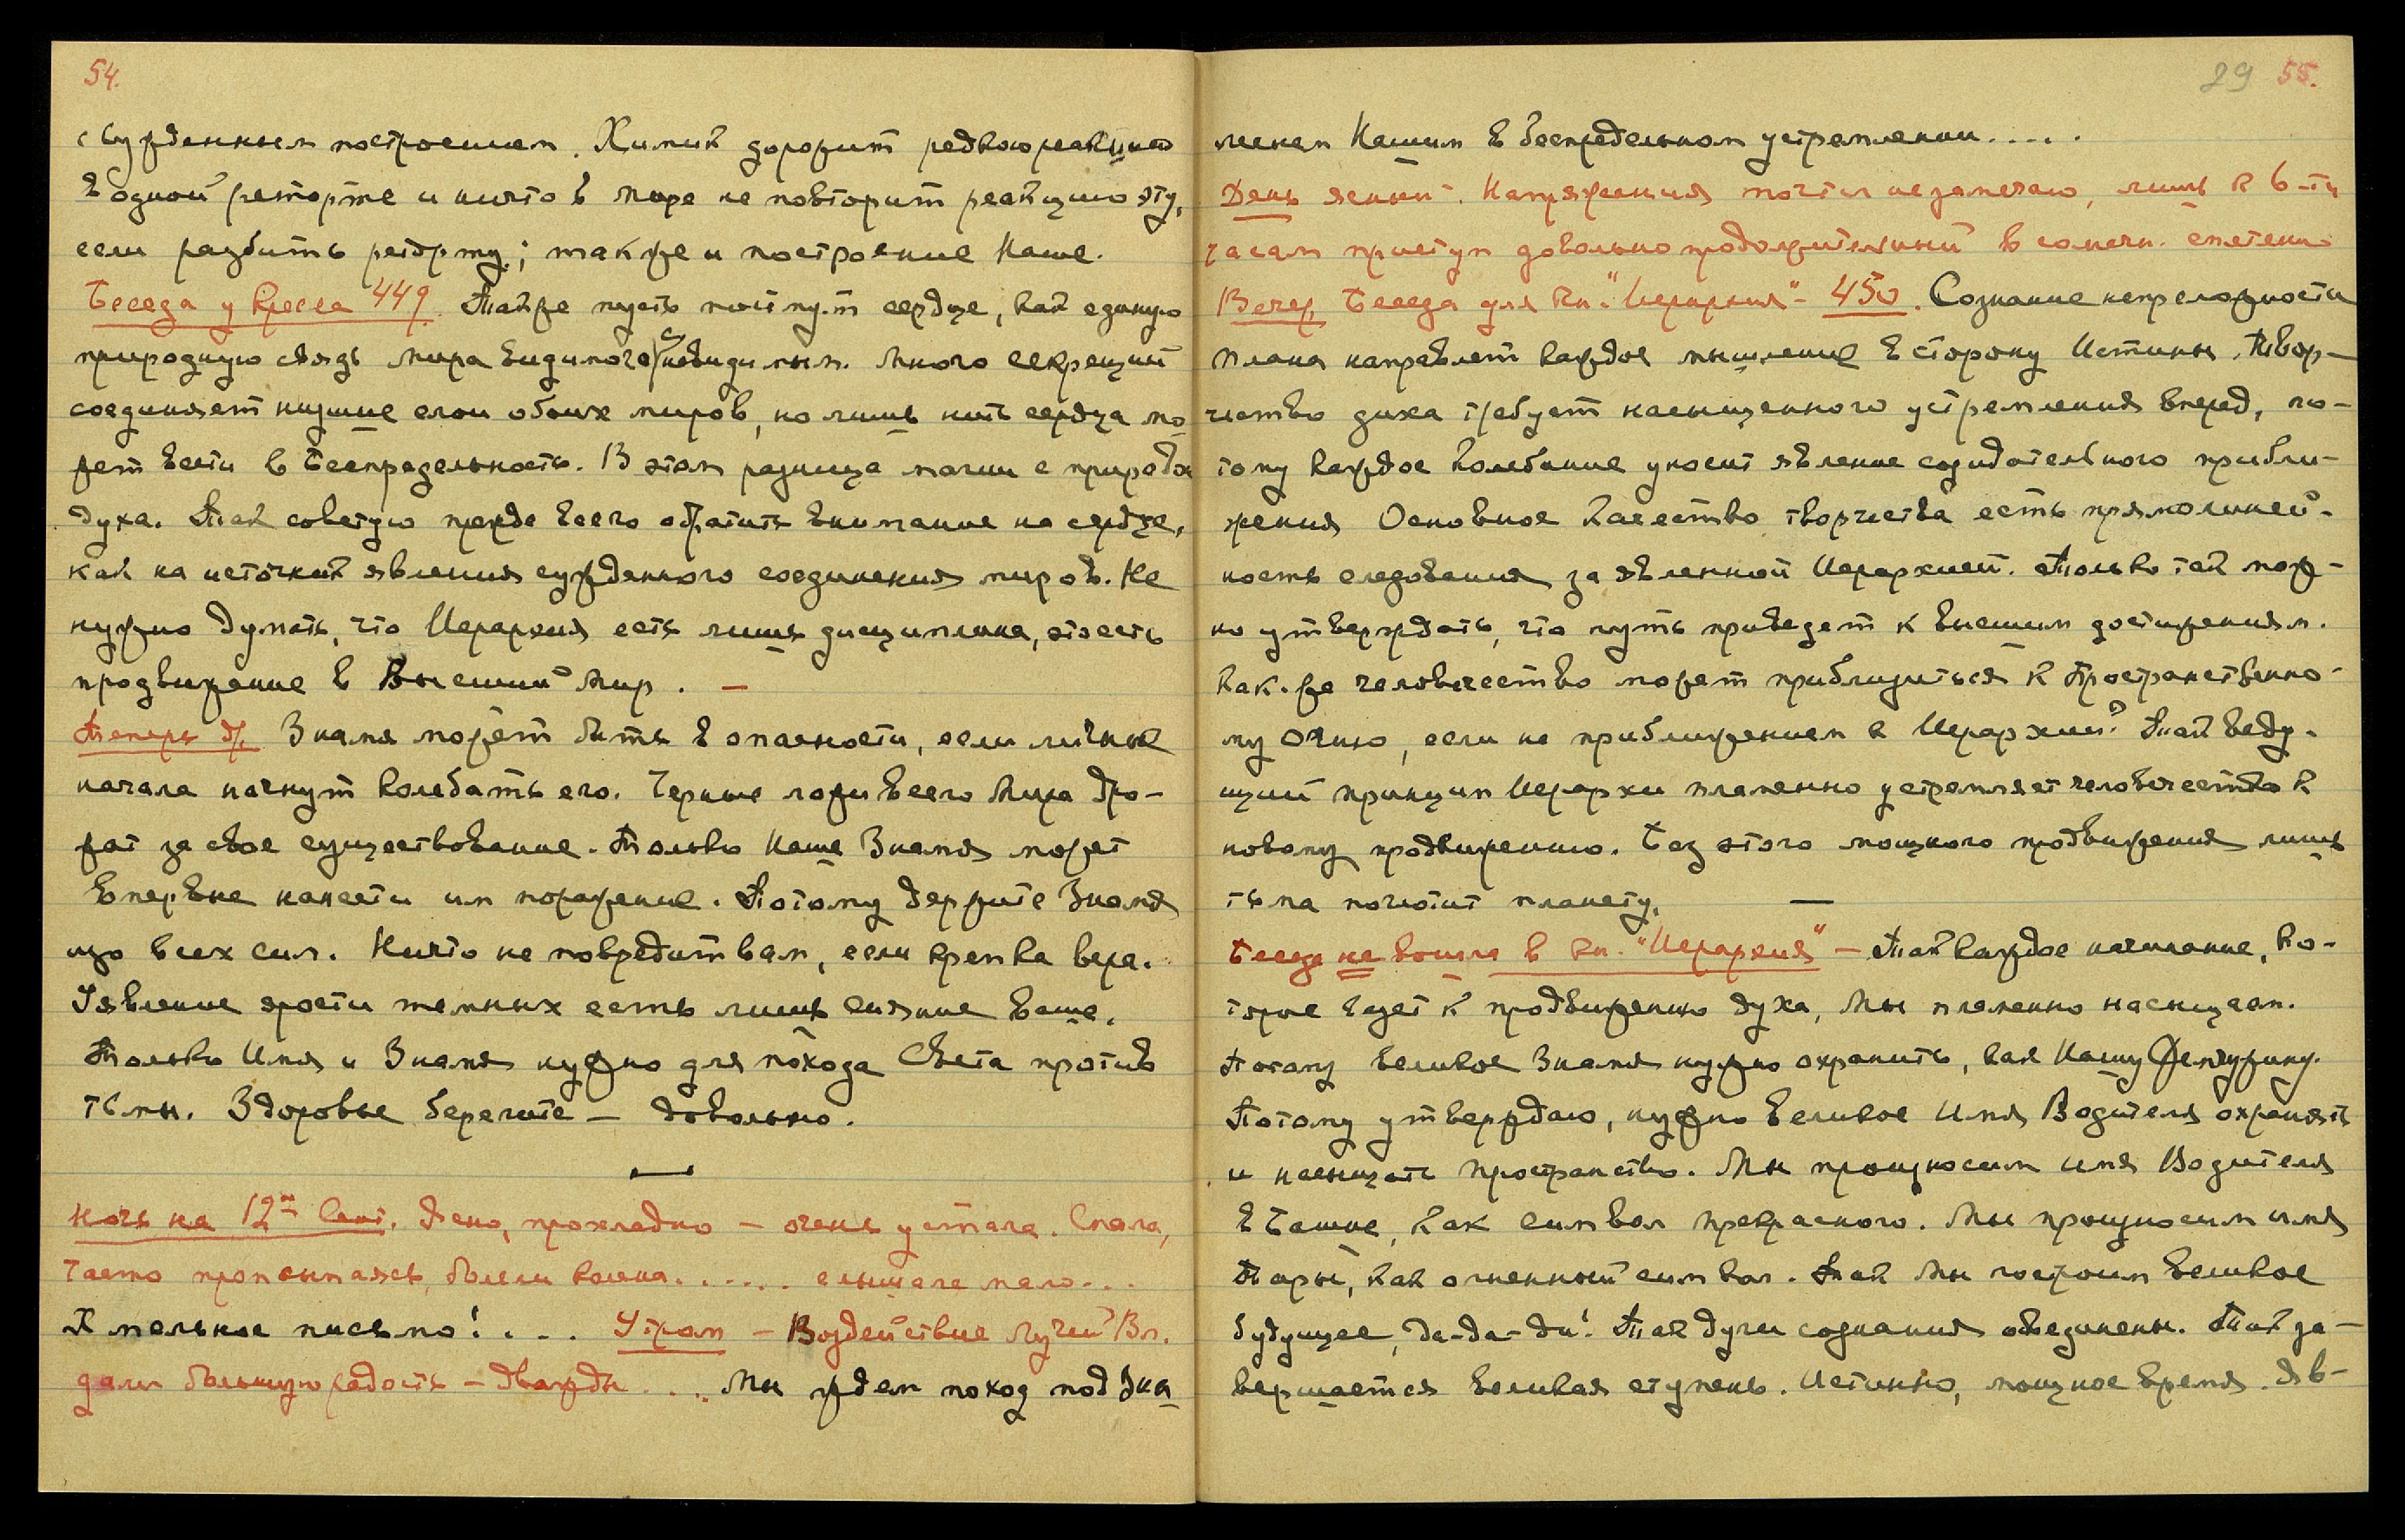 54.
сужденным построением. Химик дорожит редкою реакциею
в одной реторте и ничто в мире не повторит реакцию эту,
если разбить реторту; также и построение Наше.
Беседа у Кресла 449. Также пусть поймут сердце, как единую
природную связь мира видимого с невидимым. Много секреций
соединяет низшие слои обоих миров, но лишь нить сердца мо-
жет вести в Беспредельность. В этом разница магии с природою
духа. Так советую прежде всего обратить внимание на сердце,
как на источник явления сужденного соединения миров. Не
нужно думать, что Иерархия есть лишь дисциплина, это есть
продвижение в Высший Мир. —
Теперь др. Знамя может быть в опасности, если личные
начала начнут колебать его. Черные ложи всего Мира дро-
жат за свое существование. Только Наше Знамя может
впервые нанести им поражение. Потому держите Знамя
изо всех сил. Ничто не повредит вам, если крепка вера.
Явление ярости темных есть лишь сияние ваше.
Только Имя и Знамя нужно для похода Света против
тьмы. Здоровье берегите — довольно.
Ночь на 12-ое Сент. Ясно, прохладно — очень устала. Спала,
часто просыпаясь, болели колена...... слышала мало...
Хмельное письмо!.... Утром — Воздействие Лучей Вл.
дали большую радость — дважды.... Мы ждем поход под Зна-
29 55.
менем Нашим в беспредельном устремлении.....
День ясный. Напряжения почти не замечаю, лишь к 6-ти
часам приступ довольно продолжительный в солнечн. сплетении
Вечер. Беседа для кн. "Иерархия" – 450. Сознание непреложности
Плана направляет каждое мышление в сторону Истины. Твор-
чество духа требует насыщенного устремления вперед, по-
тому каждое колебание уносит явление созидательного прибли-
жения. Основное качество творчества есть прямолиней-
ность следования за явленной Иерархией. Только так мож-
но утверждать, что путь приведет к высшим достижениям.
Как-же человечество может приблизиться к Пространственно-
му Огню, если не приближением к Иерархии? Так веду-
щий принцип Иерархии пламенно устремляет человечество к
новому продвижению. Без этого мощного продвижения лишь
тьма поглотит планету. —
Беседа не вошла в кн. "Иерархия" — Так каждое начинание, ко-
торое ведет к продвижению духа, Мы пламенно насыщаем.
Потому великое Знамя нужно охранить, как Нашу Жемчужину.
Потому утверждаю, нужно великое Имя Водителя охранять
и насыщать пространство. Мы произносим имя Водителя
в Башне, как символ прекрасного. Мы произносим имя
Тары, как огненный символ. Так Мы построим великое
будущее, да-да-да! Так лучи сознания объединены. Так за-
вершается великая ступень. Истинно, мощное время. Яв-